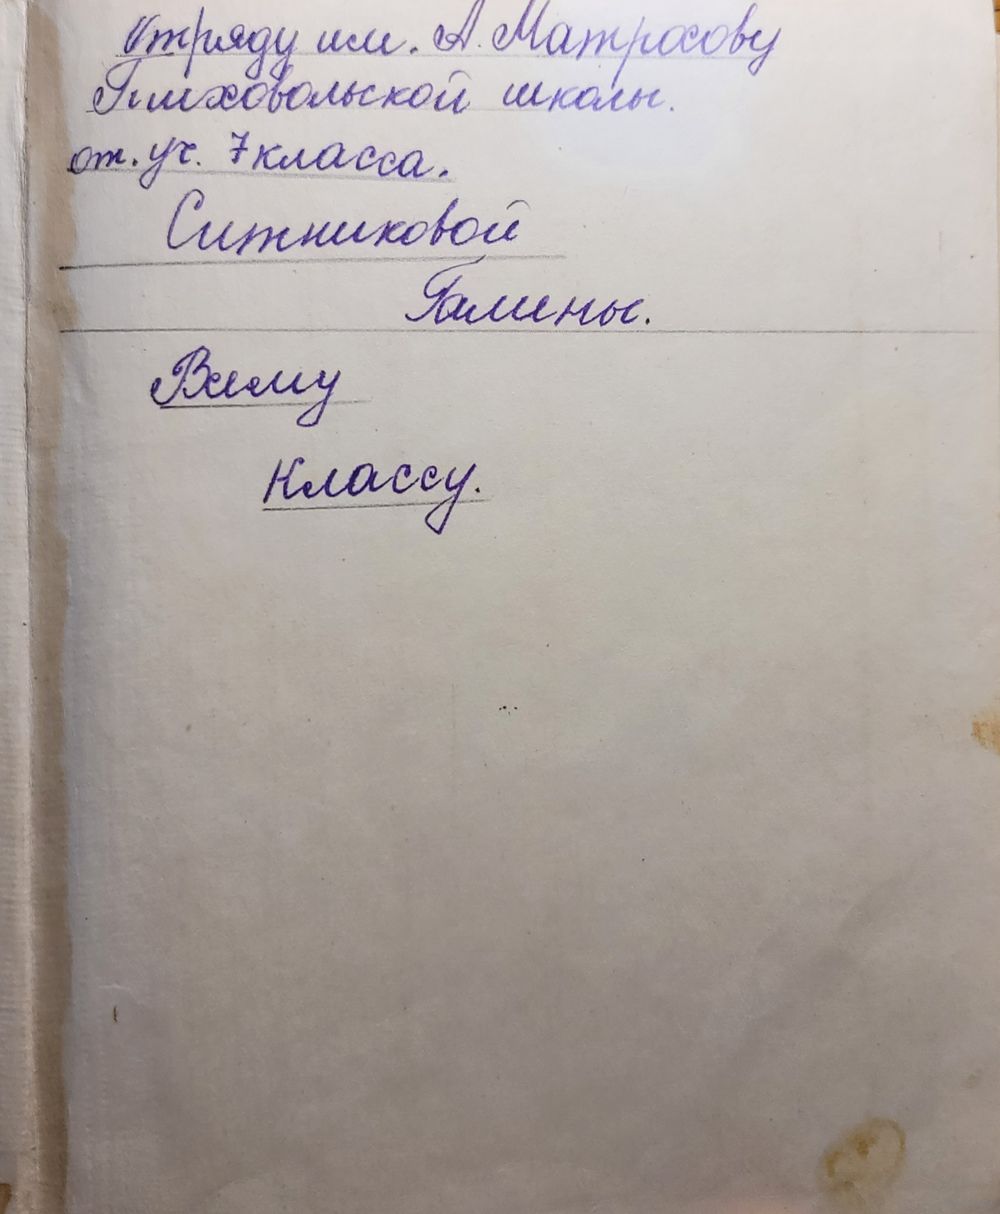 Отряду им. А. Матросову
школы.
от. уч. 7 класса.
Ситниковой
Галины.
Вашму
Классу.